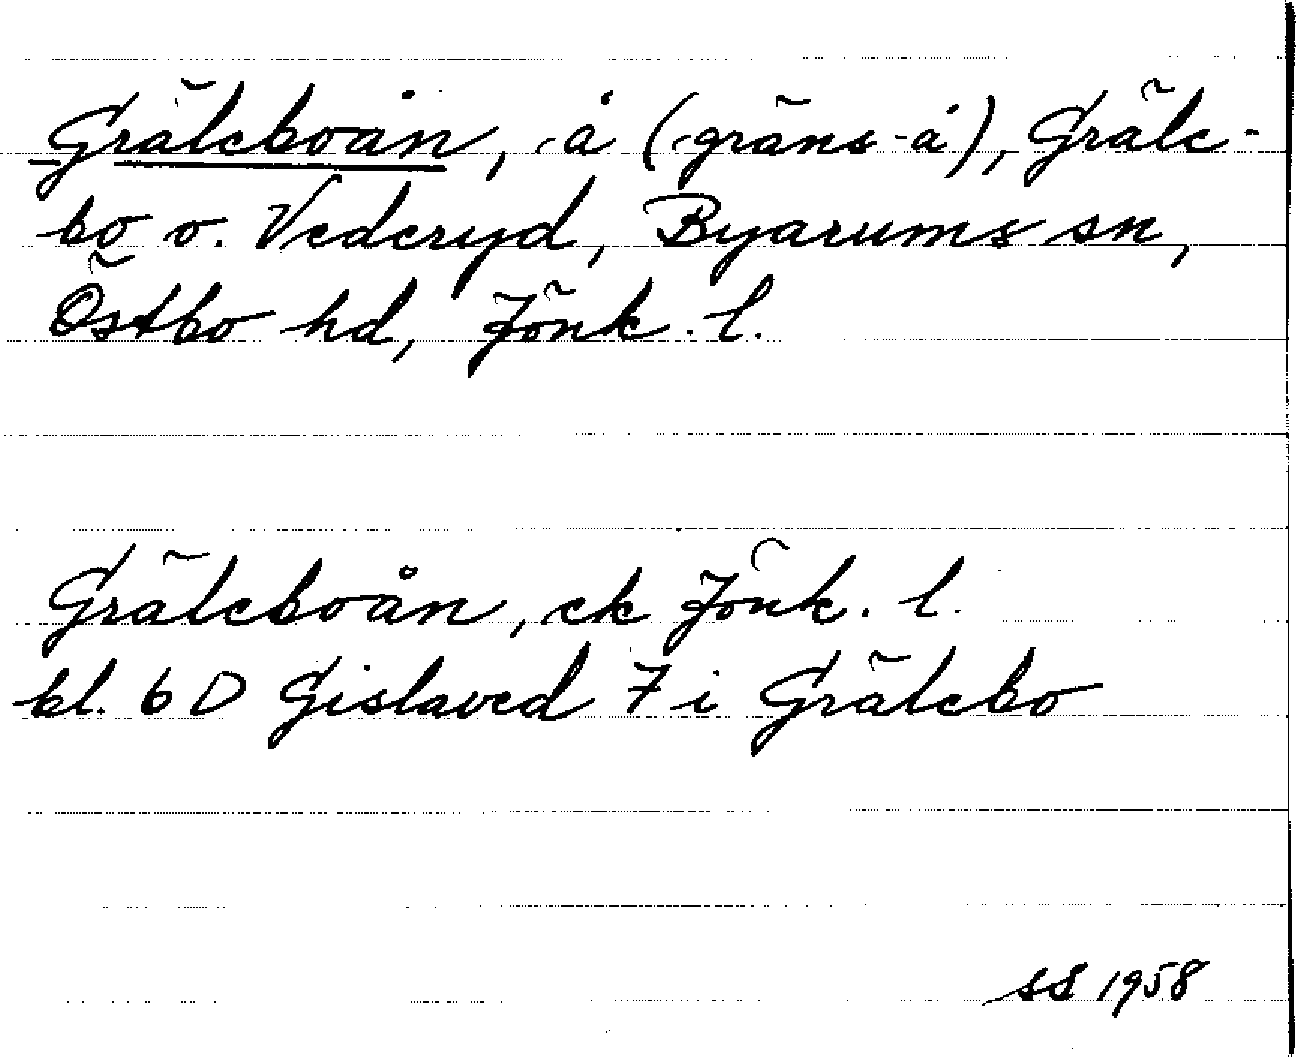 Gräleboån, å (gräns-å), Gräle-
bo o. Vederyd, Byarums sn,
Östbo hd, Jönk. l.
Gräleboån, ek Jönk. l.
bl. 6 D Gislaved 7 i Gräle­bo
SS 1958